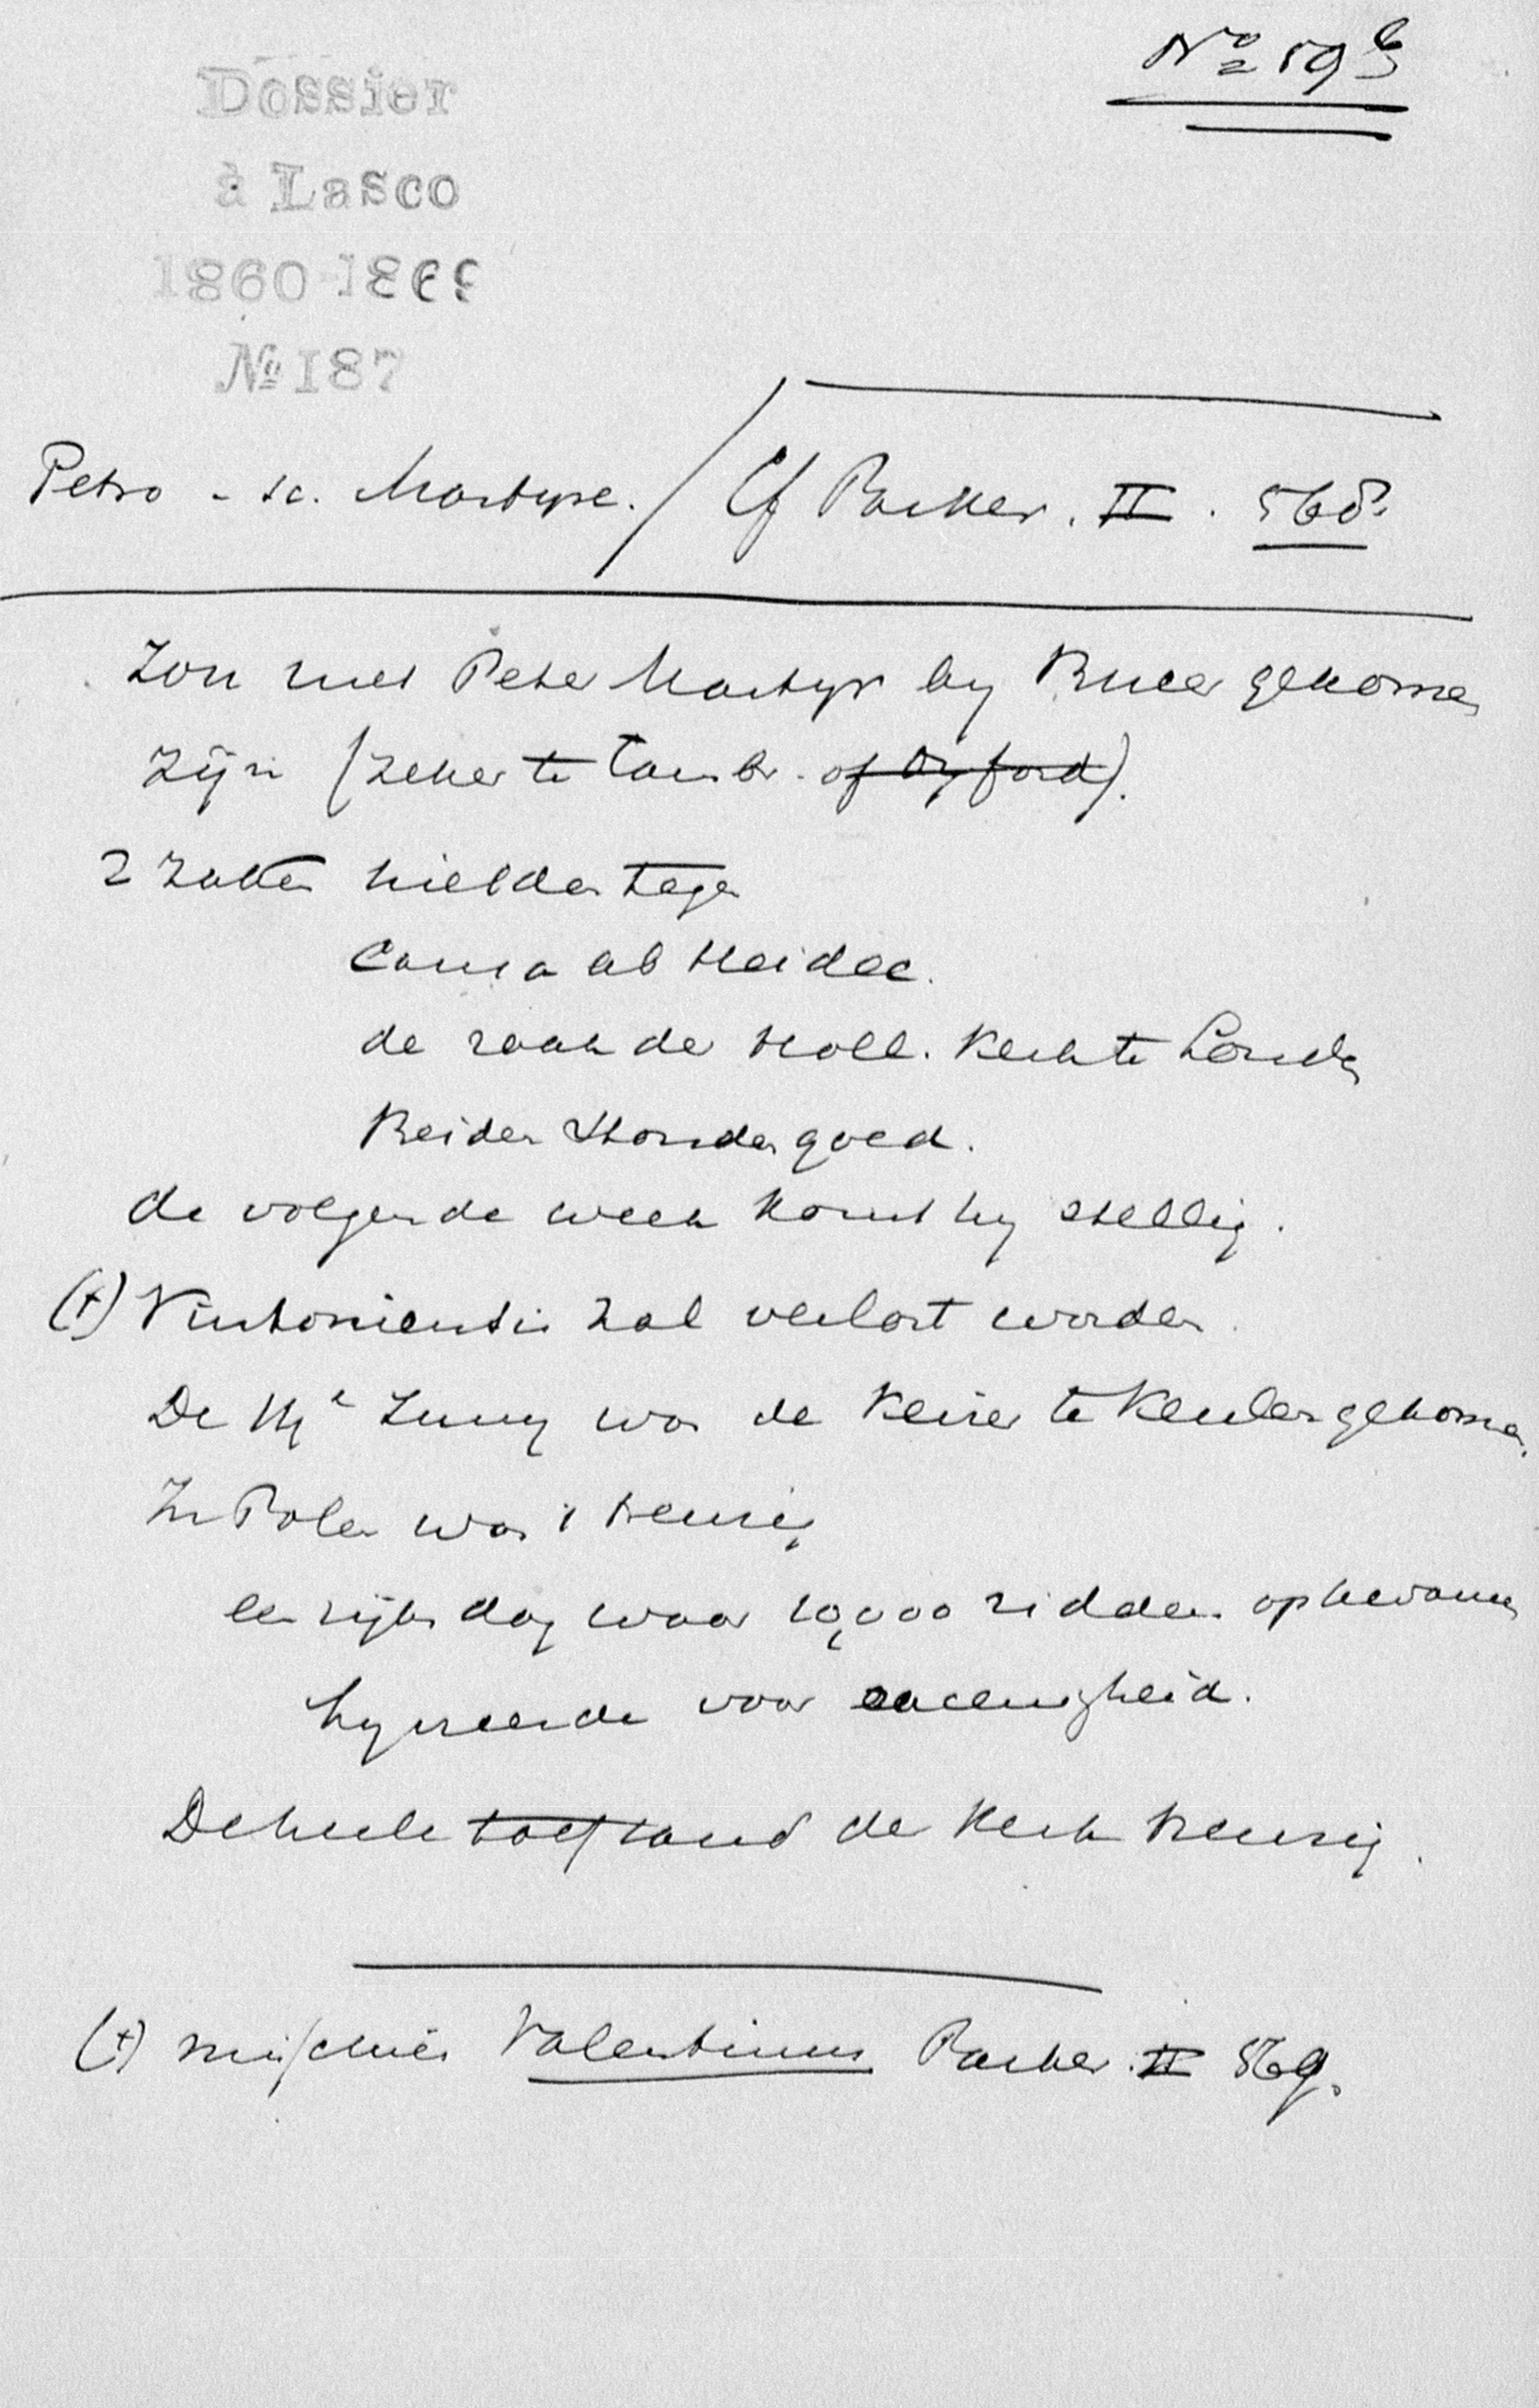 Nº 59b
Dossier
à Lasco
1860-1869
№ 187
Petro - sc. Martyre. / Cf Parker. II. 568.
Zou met Peter Martyr by Bucer gekomen
zijn (zeker te Cambr. of Oxford).
2 zaken hielden tegen
Causa ab Heidec.
de zaak der Holl. Kerk te Londen
Beiden stonden goed.
de volgende week komt hy stellig.
(†) Vintoniensis zal verlost worden.
De Juny was de Keizer te Keulen gekomen.
In Polen was 't treurig
een rijksdag waar 10,000 ridders op kwamen
hy vreesde voor oneenigheid.
De heele toestand der Kerk treurig.
(†) misschien Valentinus Parker. II 569.